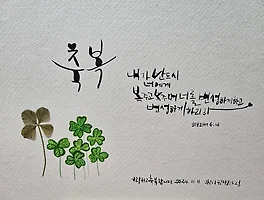 축복
내가 반드시
너에게
복주고 복주며 너를 번성하게하고
번성하게 하리라
히브리서 6:14